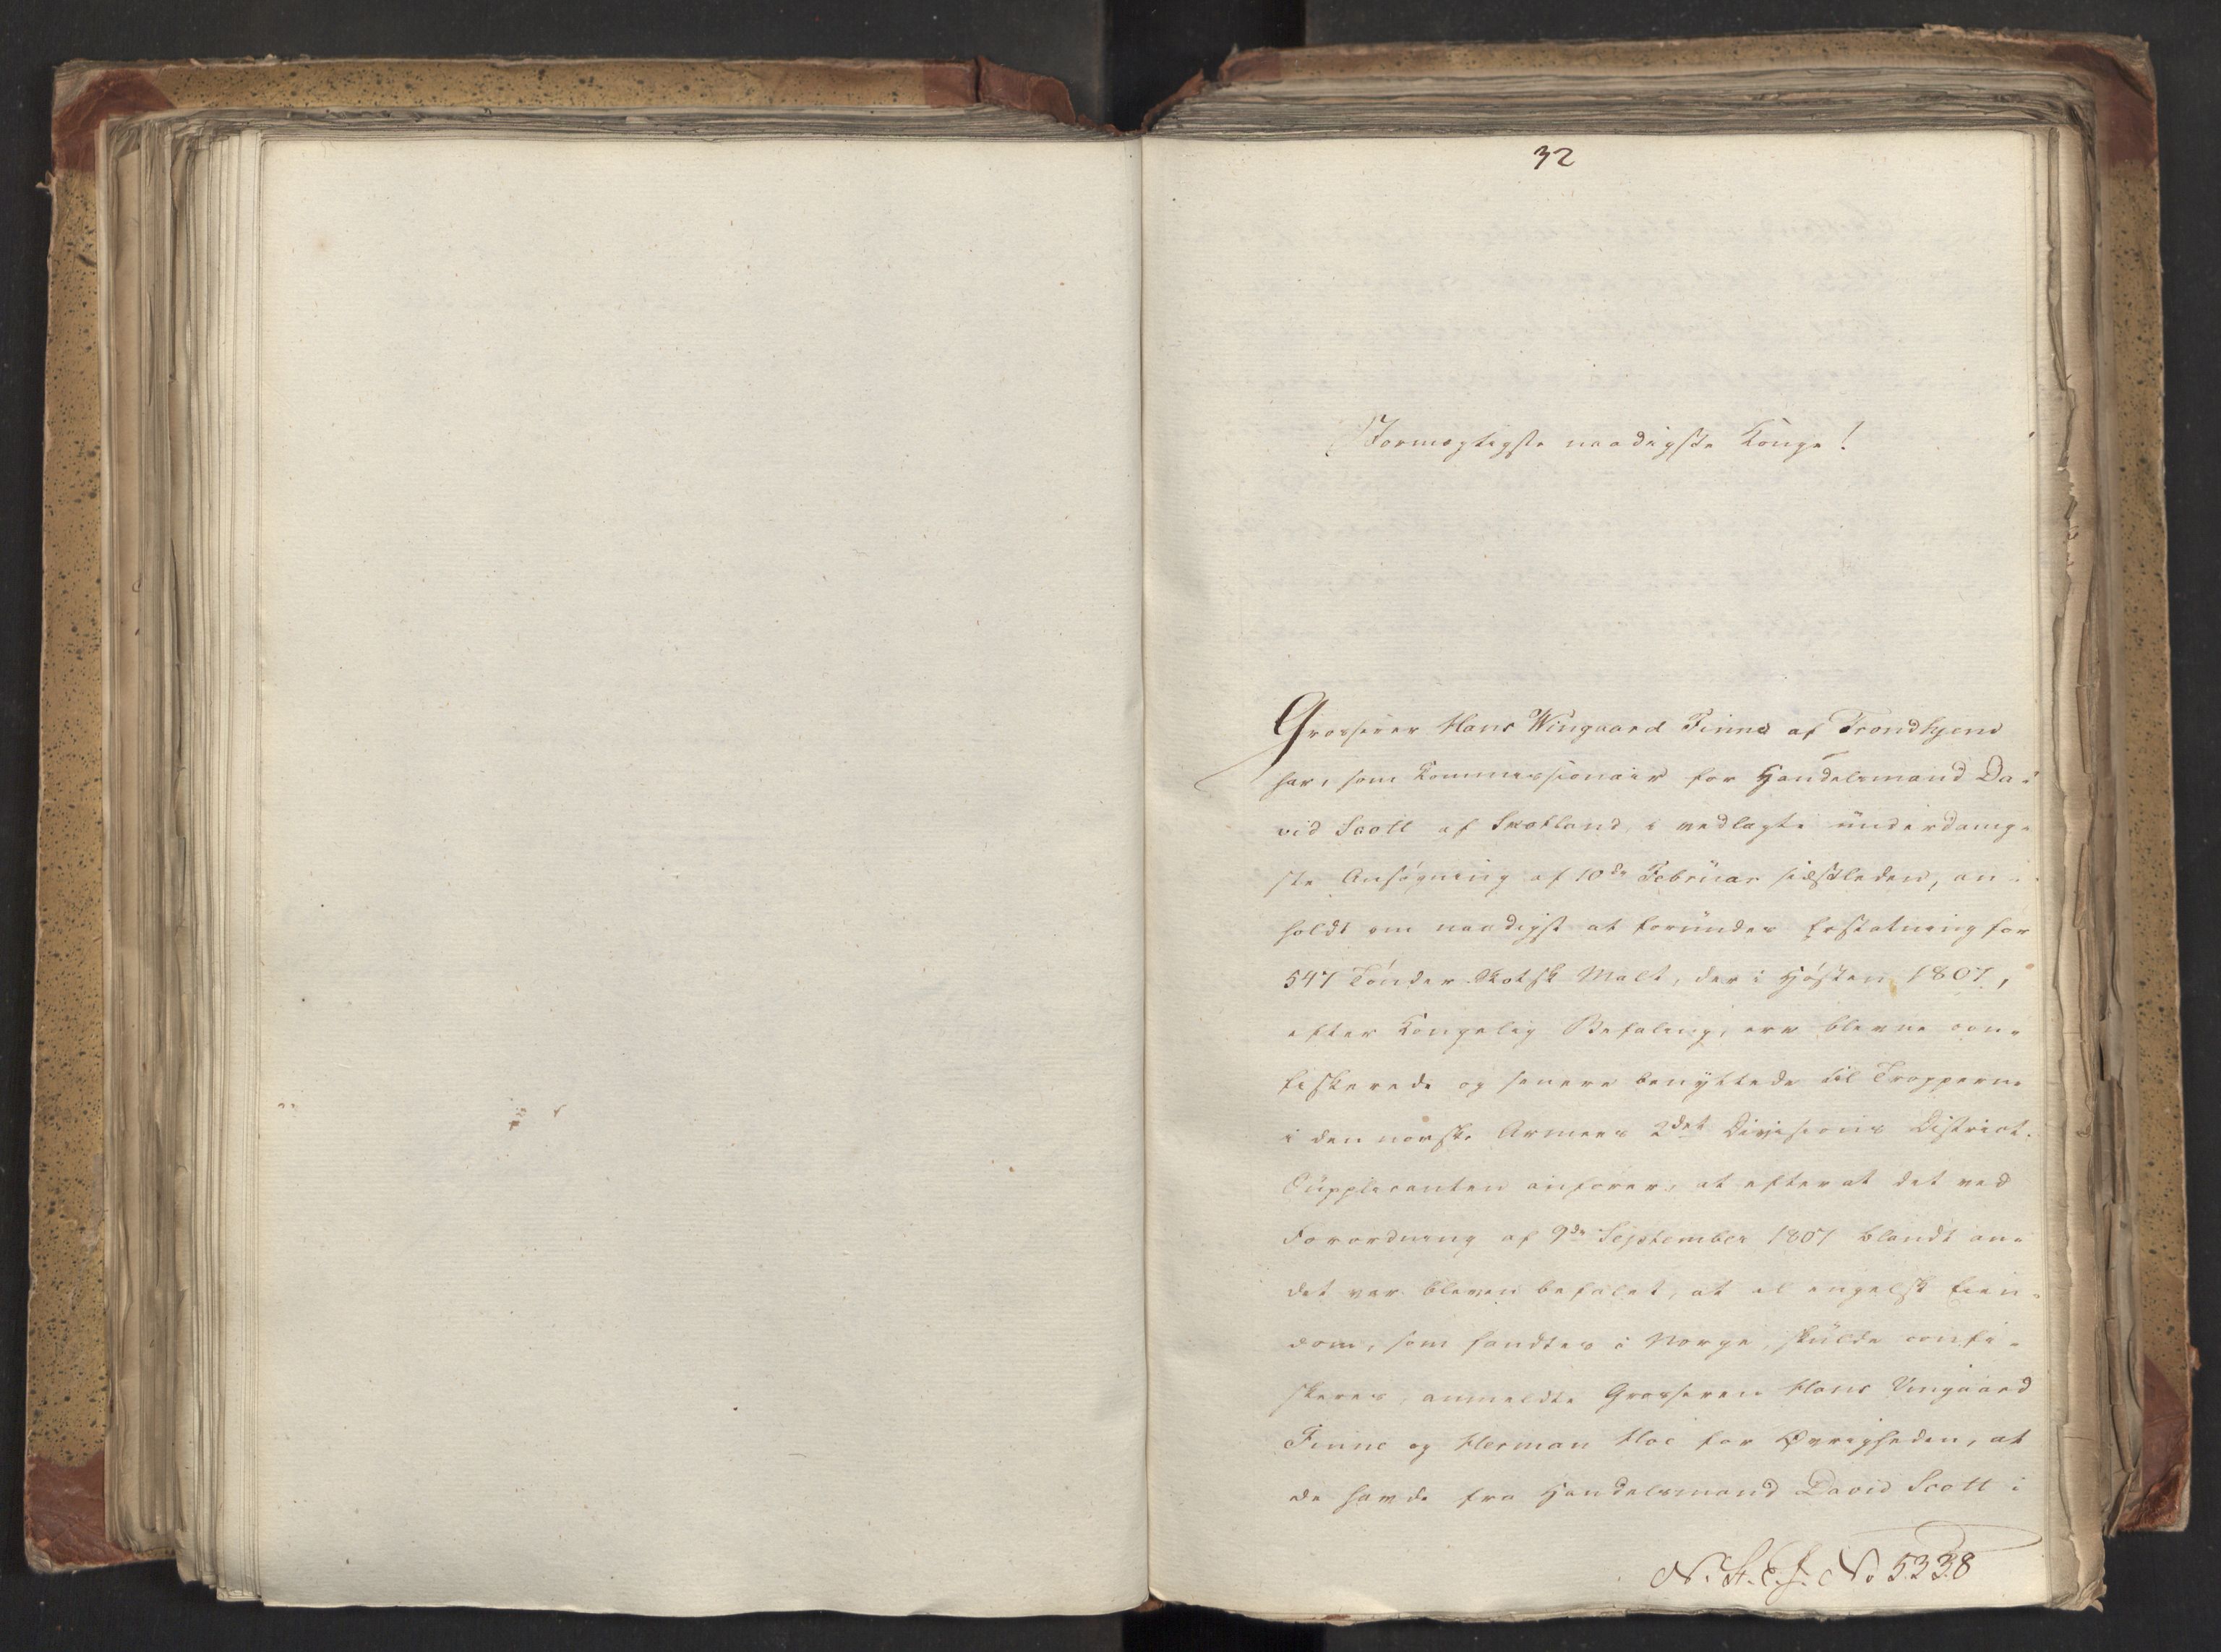 32
Stormægtigste naadigste Konge!
Grosserer Hans Wingaard Finne af Trondhjem
har, som Kommissionair for Handelsmand Da-
vid Scott af Skotland, i vedlagte underdanig-
ste Ansøgning af 10de Februar sidstleden, an-
holdt om naadigst at forundes Erstatning for
547 Tønder Skotsk Malt, der i Høsten 1807,
efter Kongelig Befaling, ere blevne con-
fiskerede og senere benyttede til Tropperne
i den norske Armees 2det Divisions District.
Supplicanten anfører, at efterat det ved
Forordning af 9de September 1807 blandt an-
det var bleven befalet, at al engelsk Eien-
dom, som fandtes i Norge, skulde confi-
skeres, anmeldte Grosserer Hans Vingaard
Finne og Herman Hoe for Øvrigheden, at
de havde fra Handelsmand David Scott i
N. St. E. J. No 5338